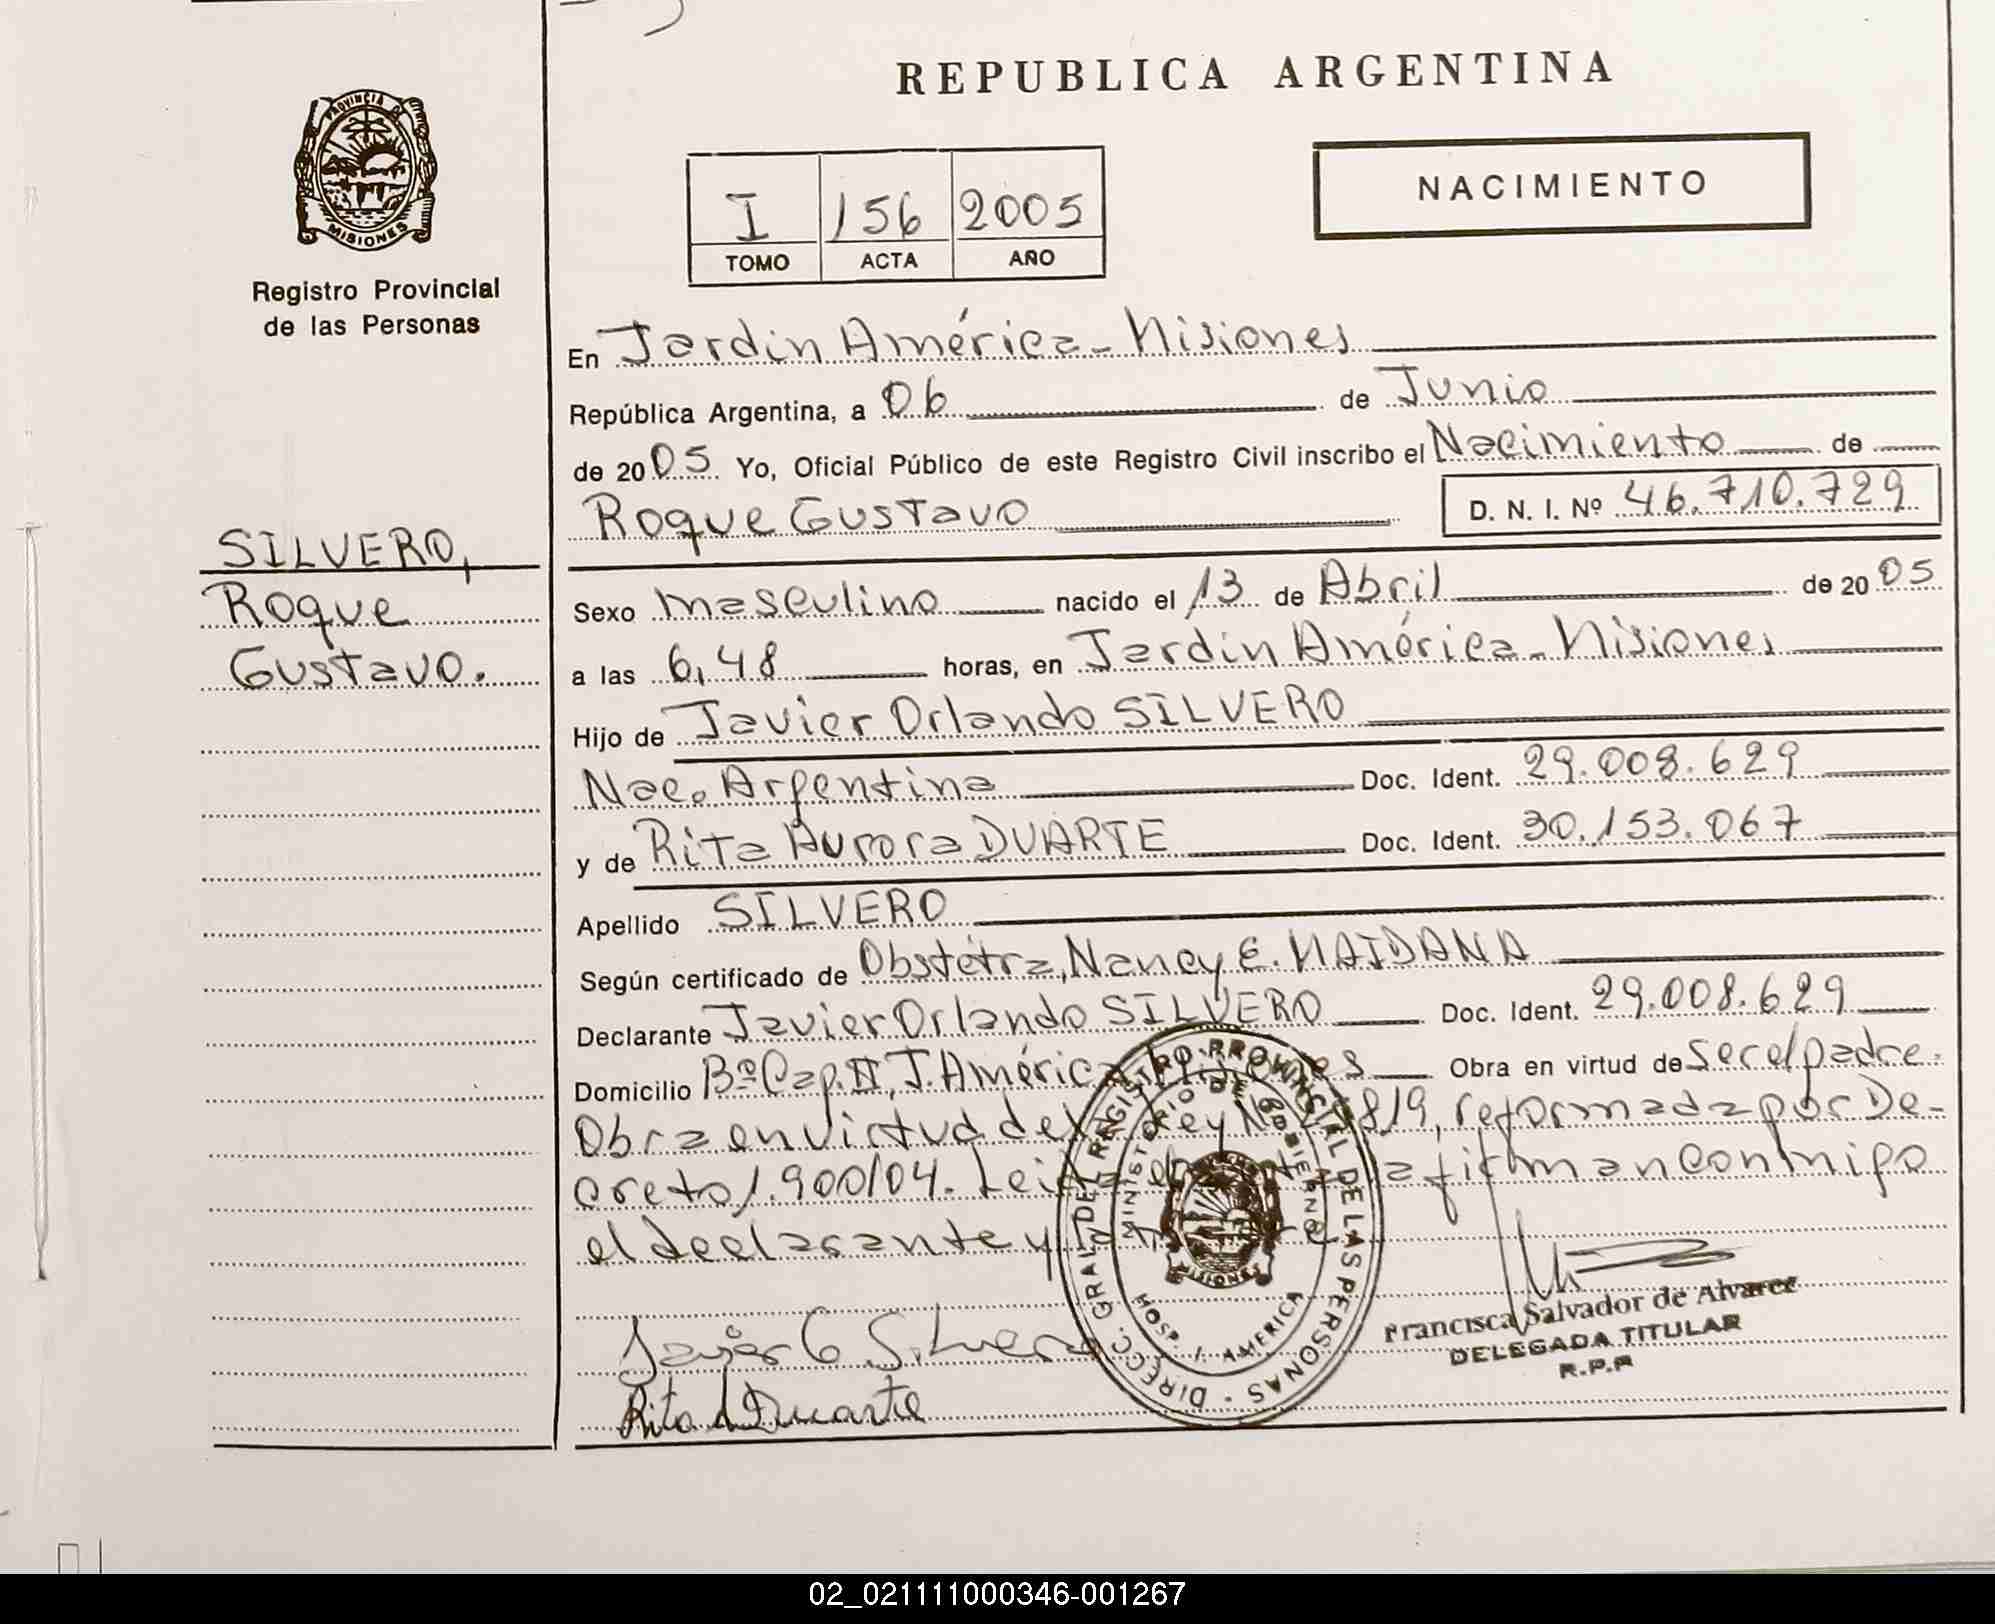 REPUBLICA ARGENTINA
PROVINCIA DE
MISIONES
Registro Provincial
de las Personas
NACIMIENTO
I 156 2005
TOMO ACTA AÑO
En Jardin América - Misiones
República Argentina, a 06 de Junio
de 2005. Yo, Oficial Público de este Registro Civil inscribo el Nacimiento de
Roque Gustavo D. N. I. Nº 46.710.729
SILVERO,
Roque
Gustavo.
Sexo masculino nacido el 13 de Abril de 2005
a las 6,48 horas, en Jardin América - Misiones
Hijo de Javier Orlando SILVERO
Nac. Argentina Doc. Ident. 29.008.629
y de Rita Aurora DUARTE Doc. Ident. 30.153.067
Apellido SILVERO
Según certificado de Obstétra, Nancy E. MAIDANA
Declarante Javier Orlando SILVERO Doc. Ident. 29.008.629
Domicilio Bº Cap. II, J. América Obra en virtud de Ser el padre.
Obra en virtud de Ley Nº 819, reformada por De-
creto 1.900/04. Leida firman conmigo
el declarante y
Javier O Silvero
Rita A Duarte
DIRECC. GRAL. DEL REGISTRO PROVINCIAL DE LAS PERSONAS
MINISTERIO DE GOBIERNO
MISIONES
HOSP. J. AMERICA
Francisca Salvador de Alvarez
DELEGADA TITULAR
R.P.P
02_021111000346-001267